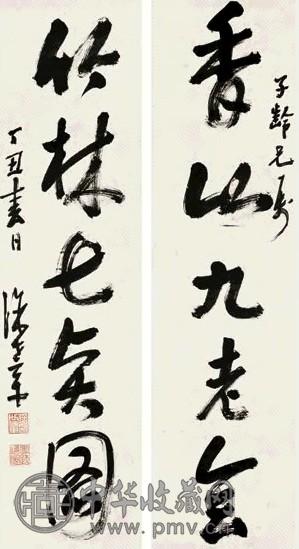 子齡兄属
香山九老会
竹林七贤图
丁丑春日
中华收藏网
www.pmv.cn